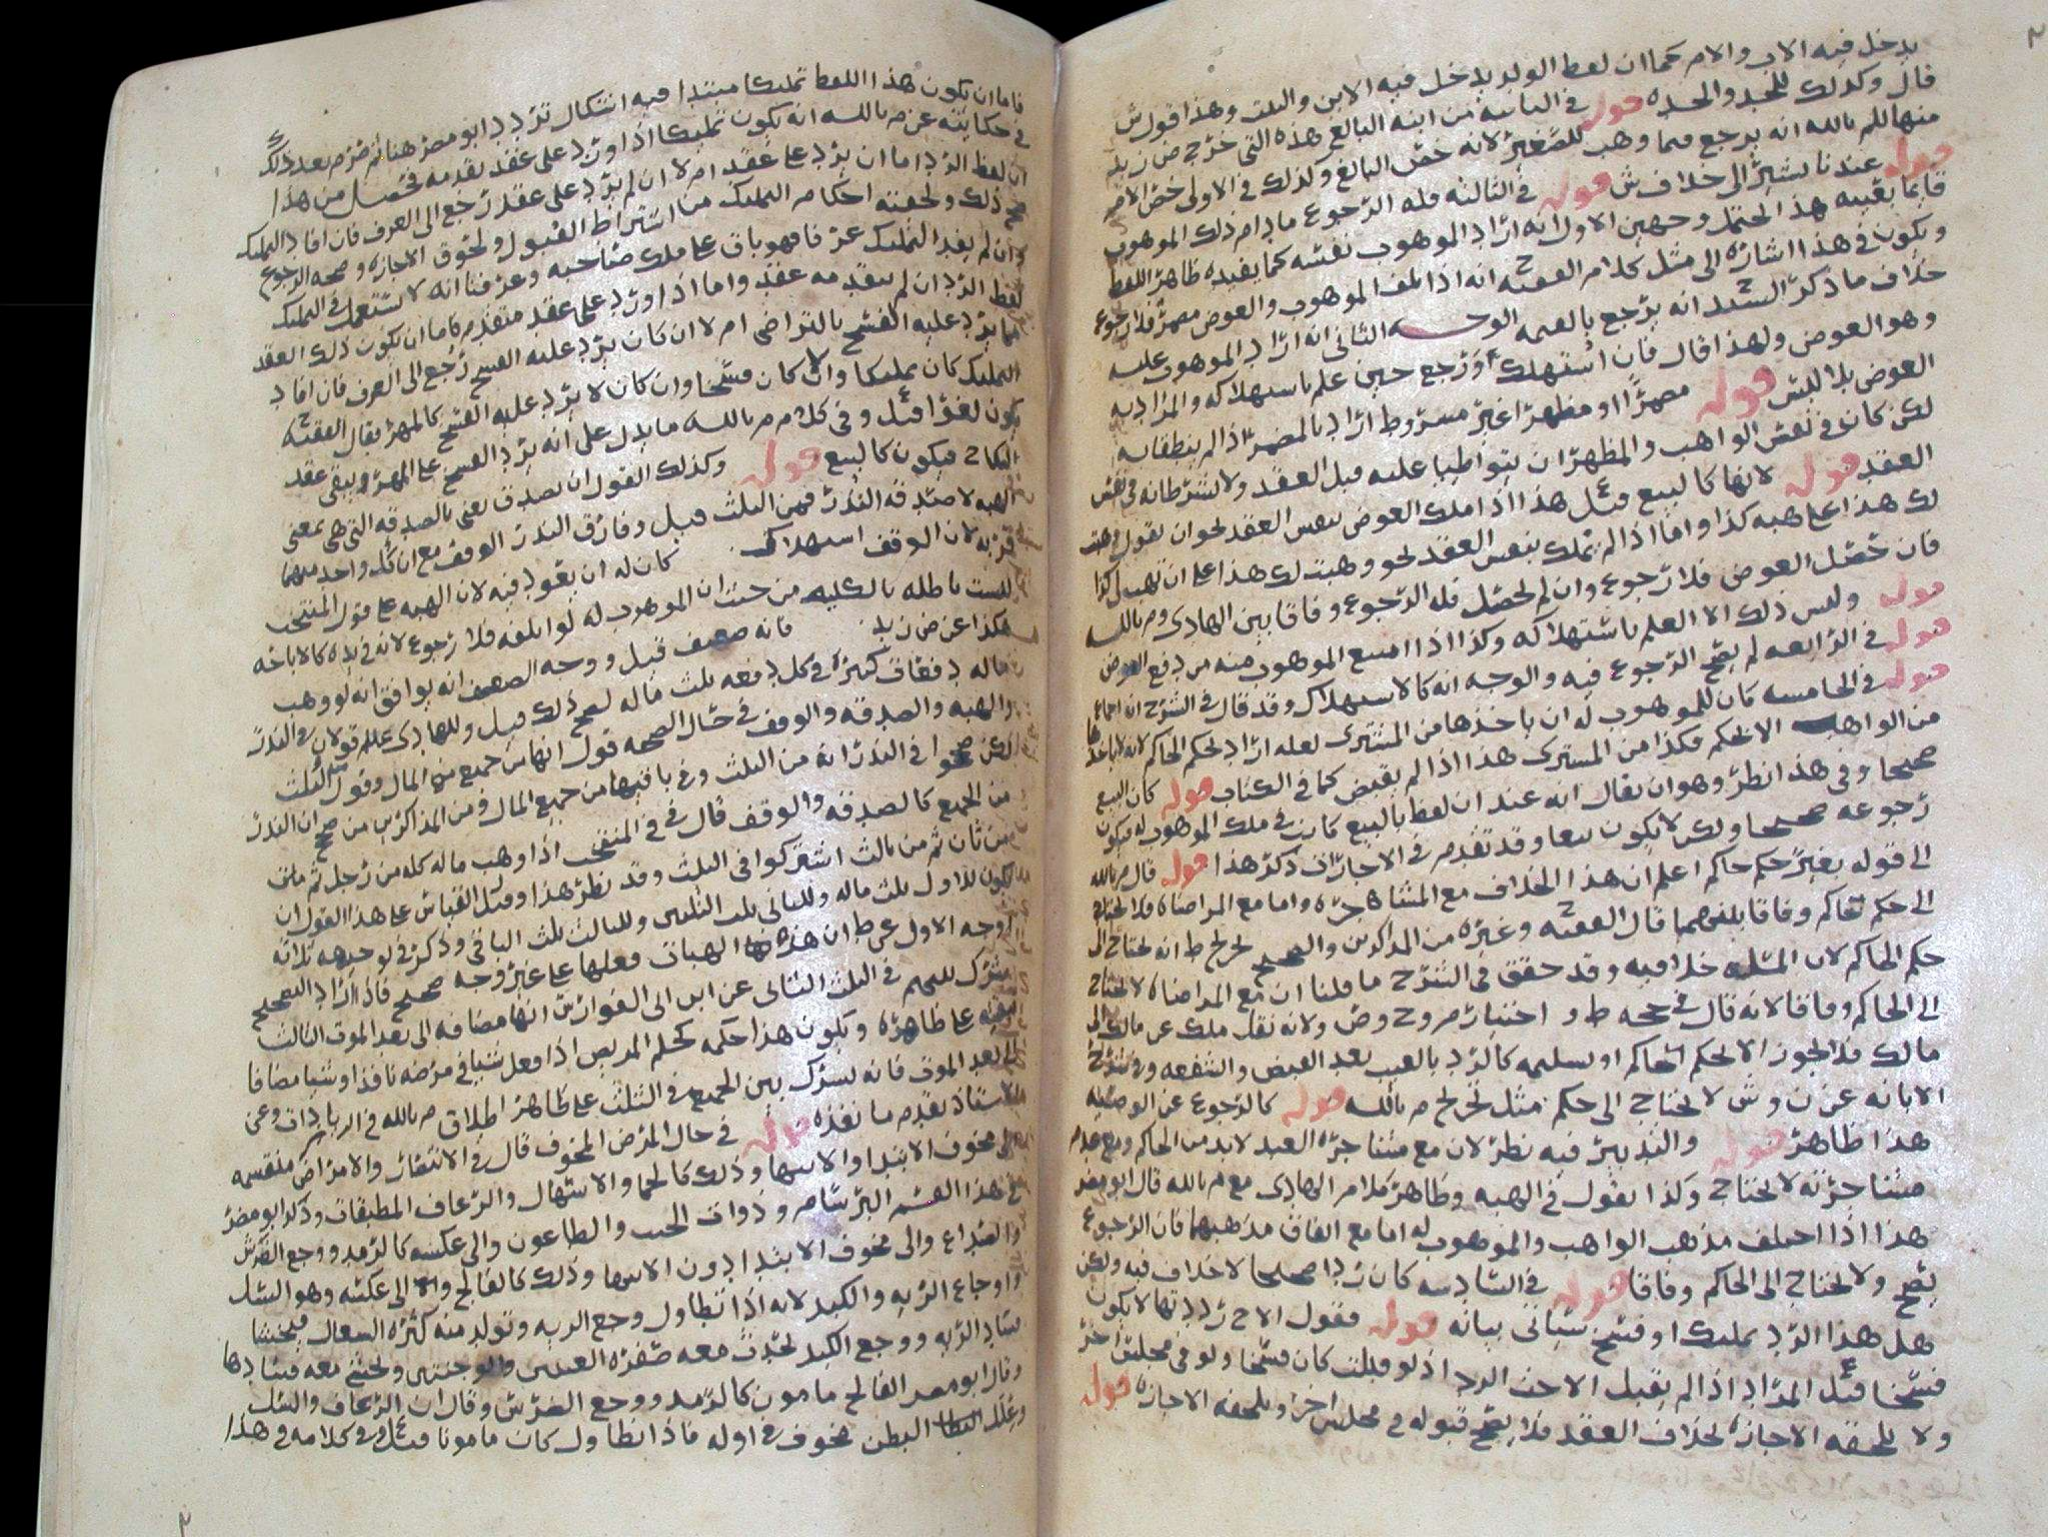 يدخل فيه الاب والام كما ان لفظ الولد يدخل فيه الابن والبنت وهذا قول ش
قال وكذلك للجد والجده قوله في الثانيه من ابنه البالغ هذه التي خرج ض زيد
منها للم بالله انه يرجع فيما وهب للصغير لانه خص البالغ وكذلك في الاولى خص الام
قوله عندنا يشير الى خلاف ش قوله في الثالثه فله الرجوع ما دام ذلك الموهوب
قايما بعينه هذا يحتمل وجهين الاول انه اراد الموهوب نفسه كما يفيده ظاهر اللفظ
ويكون في هذا اشاره الى مثل كلام الفقيه ح انه اذا تلف الموهوب والعوض مضمر فلا رجوع
خلاف ما ذكر السيد ح انه يرجع بالقيمه الوجه الثاني انه اراد الموهوب عليه
وهو العوض ولهذا قال فان استهلك اورجع حين علم باستهلاكه والمراد به
العوض بلا لبس قوله مضمرا او مظهرا غير مشروط اراد بالمضمر اذا لم ينطقا به
لكن كان في نفس الواهب والمظهر ان يتواطيا عليه قبل العقد ولا يشرطانه في نفس
العقد قوله لانها كالبيع قيل ع هذا اذا ملك العوض بنفس العقد نحو ان يقول وهبت
لك هذا على هبه كذا واما اذا لم يملك بنفس العقد نحو وهبت لك هذا على ان تهب لي كذا
فان حصل العوض فلا رجوع وان لم يحصل فله الرجوع وفاقا بين الهادي وم بالله
قوله وليس ذلك الا العلم باستهلاكه وكذا اذا امتنع الموهوب منه من دفع العوض
قوله في الرابعه لم يصح الرجوع فيه والوجه انه كالاستهلاك وقد قال في الشرح
قوله في الخامسه كان للموهوب له ان ياخذها من المشتري لعله اراد بحكم الحاكم لانه لا ياخذها
من الواهب الا بحكم فكذا من المشتري هذا اذا لم يقبض كما في الكتاب قوله كان البيع
صحيحا وفي هذا نظر وهو ان يقال انه عند ان لفظ بالبيع كانت في ملك الموهوب له فيكون
رجوعه صحيحا ولكن لا يكون بيعا وقد تقدم في الاجازات ذكر هذا قوله قال م بالله
الى قوله بغير حكم حاكم اعلم ان هذا الخلاف مع المشاجره واما مع المراضاه فلا يحتاج
الى حكم حاكم وفاقا بلفظهما قال الفقيه ح وغيره من المذاكرين والصحيح لتخريج ط انه يحتاج الى
حكم الحاكم لان المسله خلافيه وقد حقق في الشرح ما قلنا ان مع المراضاه لا يحتاج
الى الحاكم وفاقا لانه قال في حجه ط و اختيار م وح وص ولانه نقل ملك عن مالك الى
مالك فلا يجوز الا بحكم الحاكم او تسليمه كالرد بالعيب بعد القبض والشفعه وفي شرح
الابانه عن ن وش لا يحتاج الى حكم مثل تخريج م بالله قوله كالرجوع عن الوصيه
هذا ظاهر قوله والتدبير فيه نظر لان مع مشاجرة العبد لا بد من الحاكم ومع عدم
مشاجرته لا يحتاج وكذا يقول في الهبه وظاهر كلام الهادي مع م بالله قال ابو مضر
هذا اذا اختلف مذهب الواهب والموهوب له اما مع اتفاق مذهبهما فان الرجوع
يصح ولا يحتاج الى الحاكم وفاقا قوله في السادسه كان ردا صحيحا لا خلاف فيه ولكن
هل هذا الرد تمليك او فسخ سياتي بيانه قوله فقول الاخ رددتها لا يكون
فسخا قيل ع المراد اذا لم تقبل الاخت الرد اذ لو قبلت كان فسخا ولو في مجلس اخر
ولا تلحقه الاجازه بخلاف العقد فلا يصح قبوله في مجلس اخر وتلحقه الاجازه قوله
فاما ان يكون هذا اللفظ تمليكا مبتدا فيه اشكال تردد ابو مضر هنا ثم صرح بعد ذلك
في حكايته عن م بالله انه يكون تمليكا اذا ورد على عقد تقدمه فحصل من هذا
ان لفظ الرد اما ان يرد على عقد ام لا ان لم يرد على عقد رجع الى العرف فان افاد التمليك
صح ذلك ولحقته احكام التمليك من اشتراط القبول ولحوق الاجازه وصحه الرجوع
وان لم يفد التمليك عرفا فهو باق على ملك صاحبه وعرفنا انه لا يستعمل في التمليك
لفظ الرد ان لم يتقدمه عقد واما اذا ورد على عقد متقدم فاما ان يكون ذلك العقد
مما يرد عليه الفسخ بالتراضي ام لا ان كان يرد عليه الفسخ رجع الى العرف فان افاد
التمليك كان تمليكا والا كان فسخا وان كان لا يرد عليه الفسخ كالمهر فقال الفقيه ح
يكون لغوا قيل ع وفي كلام م بالله ما يدل على انه يرد الفسخ على المهر ويبقى عقد
النكاح فيكون كالبيع قوله وكذلك القول ان تصدق يعني بالصدقه التي هي بمعنى
الهبه لا صدقه النذر فمن الثلث قيل وفارق النذر الوقف مع ان كل واحد منهما
قربه لان الوقف استهلاك كان له ان يعود فيه لان الهبه على قول المنتخب
ليست باطله بالكليه من حيث ان الموهوب له لو اتلفه فلا رجوع لانه في يده كالاباحه
هكذا عن ض زيد فانه ضعيف قيل ووجه الضعف انه يوافق انه لو وهب
ماله دفعات كثيره في كل دفعه ثلث ماله لصح ذلك قيل وللهادي علم قولان في النذر
والهبه والصدقه والوقف في حال الصحه قول انها من جميع المال وقول من الثلث
لكن صححوا في النذر انه من الثلث وفي باقيها من جميع المال ومن المذاكرين من صحح ان النذر
من الجميع كالصدقه والوقف قال في المنتخب اذا وهب ماله كله من رجل ثم من
من ثان ثم من ثالث اشتركوا في الثلث وقد نظر هذا وقيل القياس على هذا القول ان
يكون للاول ثلث ماله وللثاني ثلث الثلثين وللثالث ثلث الباقي وذكر في توجيهه ثلاثه
اوجه الاول عن ط ان هذه الهبات فعلها على غير وجه صحيح فاذا اراد التصحيح
شرك بينهم في الثلث الثاني عن ابن ابي الفوارس انها مضافه الى بعد الموت الثالث
ابقيه على ظاهره ويكون هذا حكمه كحكم المريض اذا فعل شيا في مرضه نافذا وشيا مضافا
الى بعد الموت فانه يشرك بين الجميع في الثلث على ظاهر اطلاق م بالله في الزيادات وعن
الاستاذ يقدم ما نفذه قوله في حال المرض المخوف قال في الانتصار والامراض منقسمه
الى مخوف الابتدا والانتها وذلك كالحما والاسهال والرعاف المطبقات وذكر ابو مضر
في هذا القسم البرسام وذوات الجنب والطاعون والى عكسه كالرمد ووجع الضرس
والصداع والى مخوف الابتدا دون الانتها وذلك كالفالج والى عكسه وهو السل
واوجاع الريه والكبد لانه اذا تطاول وجع الريه وتولد منه كثره السعال فيخشا
فساد الريه ووجع الكبد يحدث معه صفره العينين والوجنتين ويخشى معه فسادها
وقال ابو مضر الفالج مامون كالرمد ووجع الضرس وقال ان الرعاف والسل
وعلة البطن مخوف في اوله فاذا تطاول كان مامونا قيل ع وفي كلامه في هذا